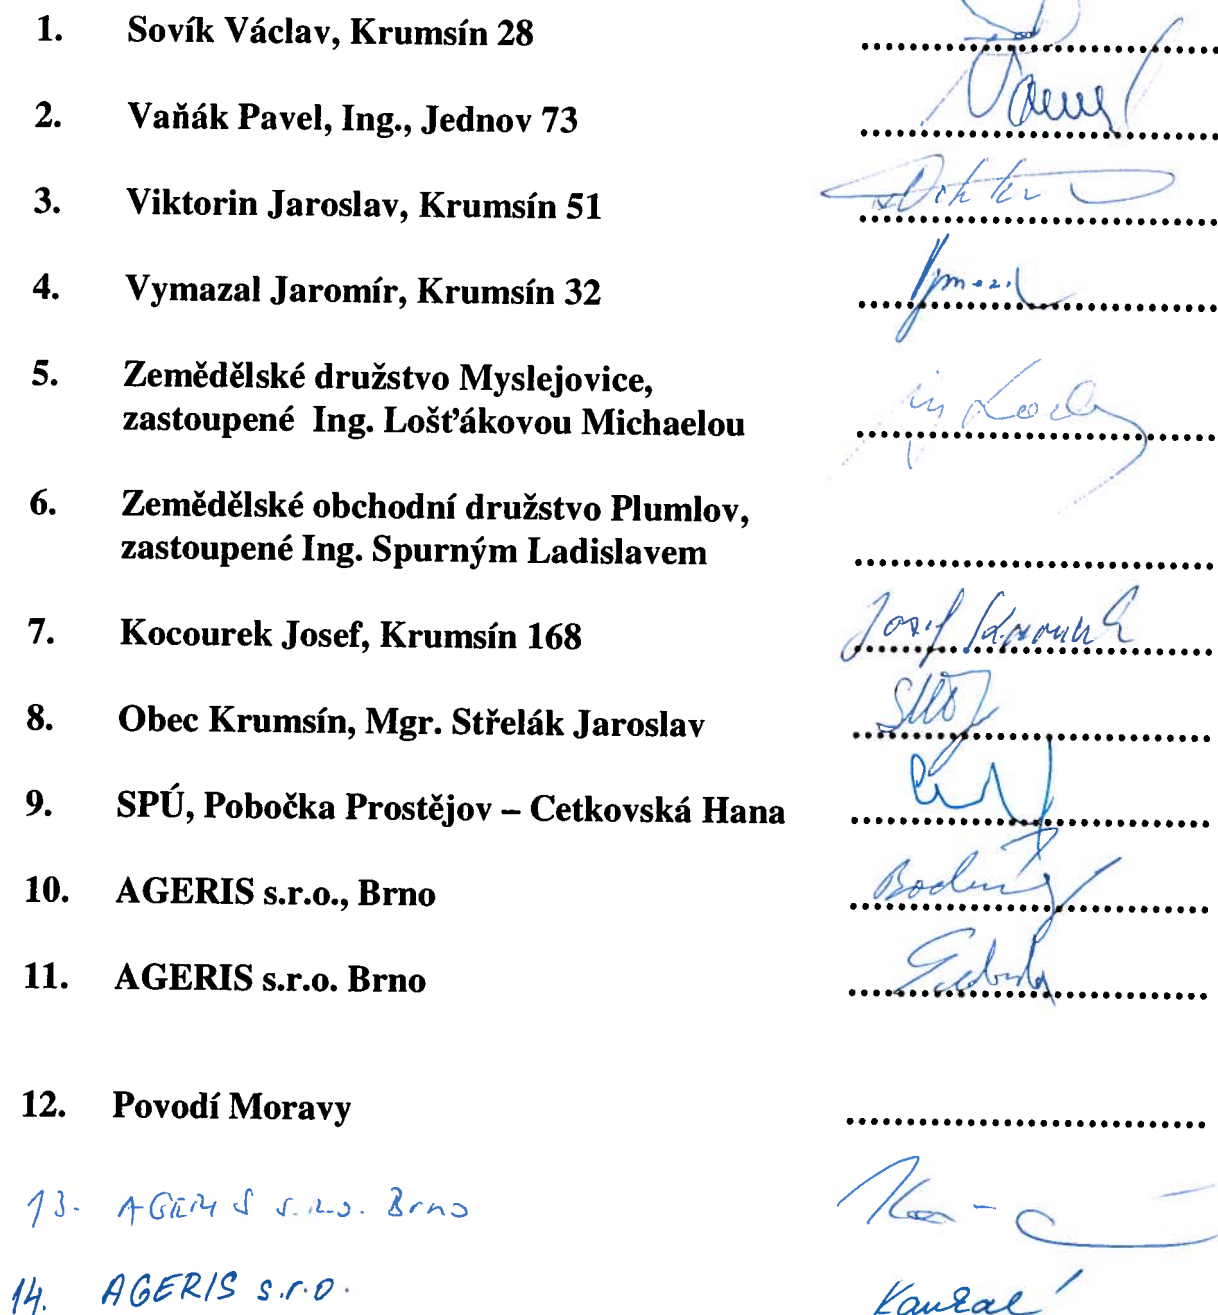 1. Sovík Václav, Krumsín 28 ........................
2. Vaňák Pavel, Ing., Jednov 73 ........................
3. Viktorin Jaroslav, Krumsín 51 ........................
4. Vymazal Jaromír, Krumsín 32 ........................
5. Zemědělské družstvo Myslejovice,
zastoupené Ing. Lošťákovou Michaelou ........................
6. Zemědělské obchodní družstvo Plumlov,
zastoupené Ing. Spurným Ladislavem ........................
7. Kocourek Josef, Krumsín 168 Josef Kocourek
8. Obec Krumsín, Mgr. Střelák Jaroslav ........................
9. SPÚ, Pobočka Prostějov – Cetkovská Hana ........................
10. AGERIS s.r.o., Brno ........................
11. AGERIS s.r.o. Brno ........................
12. Povodí Moravy ........................
13. AGERIS s.r.o. Brno
14. AGERIS s.r.o.